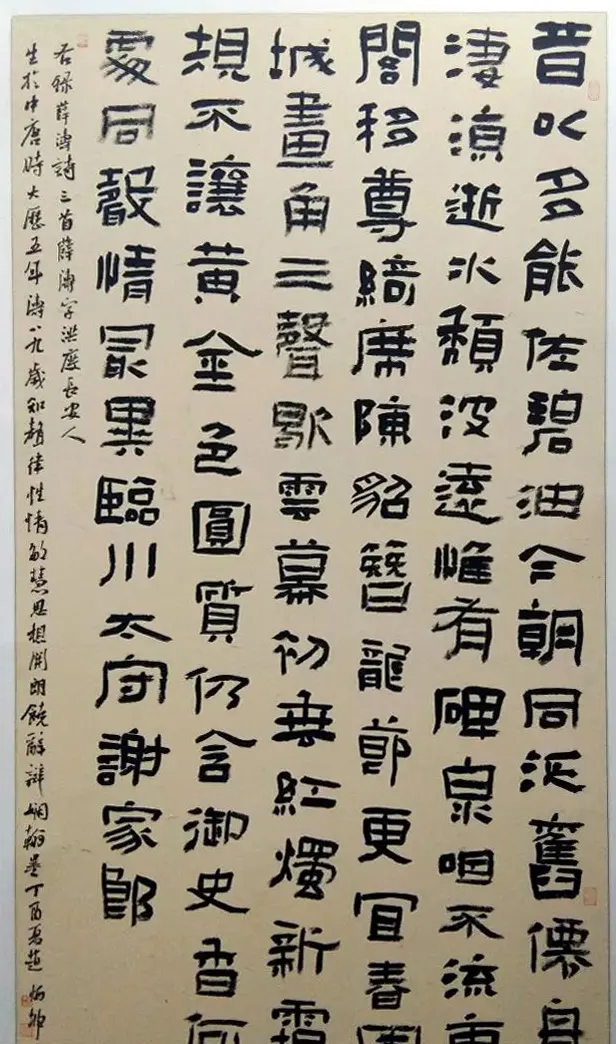 昔以多能佐碧油今朝同泛舊僊舟
淒涼逝水頹波遠惟有碑泉咽不流東
閤移尊綺席陳貂簪龍節更宜春軍
城畫角三聲歇雲幕初垂紅燭新霜
規不讓黃金色圓質仍含御史香何
處同聲情最異臨川太守謝家郎
右錄薛濤詩三首薛濤字洪度長安人
生於中唐時大歷五年濤八九歲知聲律性情敏慧思想開朗饒辭辯嫻翰墨丁酉夏趙